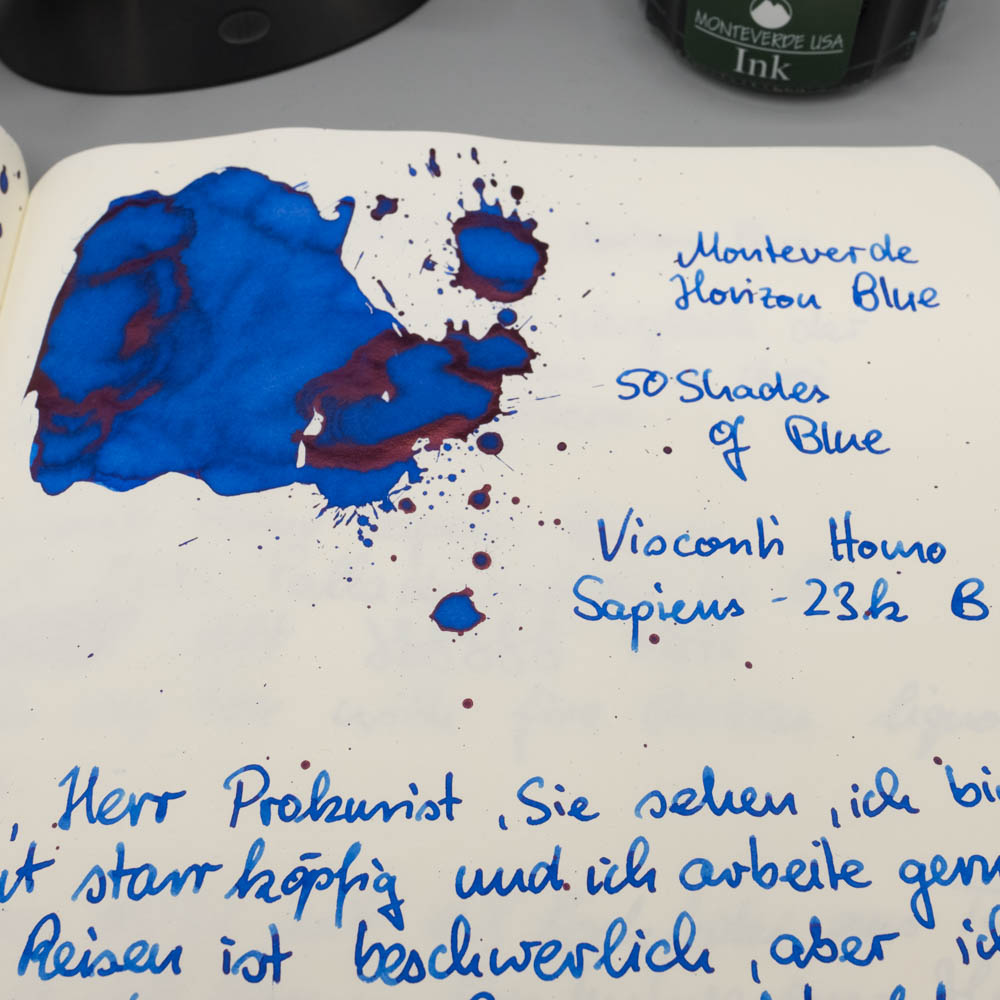 MONTEVERDE USA
Ink
Monteverde
Horizon Blue
50 Shades
of Blue
Visconti Homo
Sapiens - 23k B
, Herr Prokurist, Sie sehen, ich bi
ut starrköpfig und ich arbeite gern
Reisen ist beschwerlich, aber ic